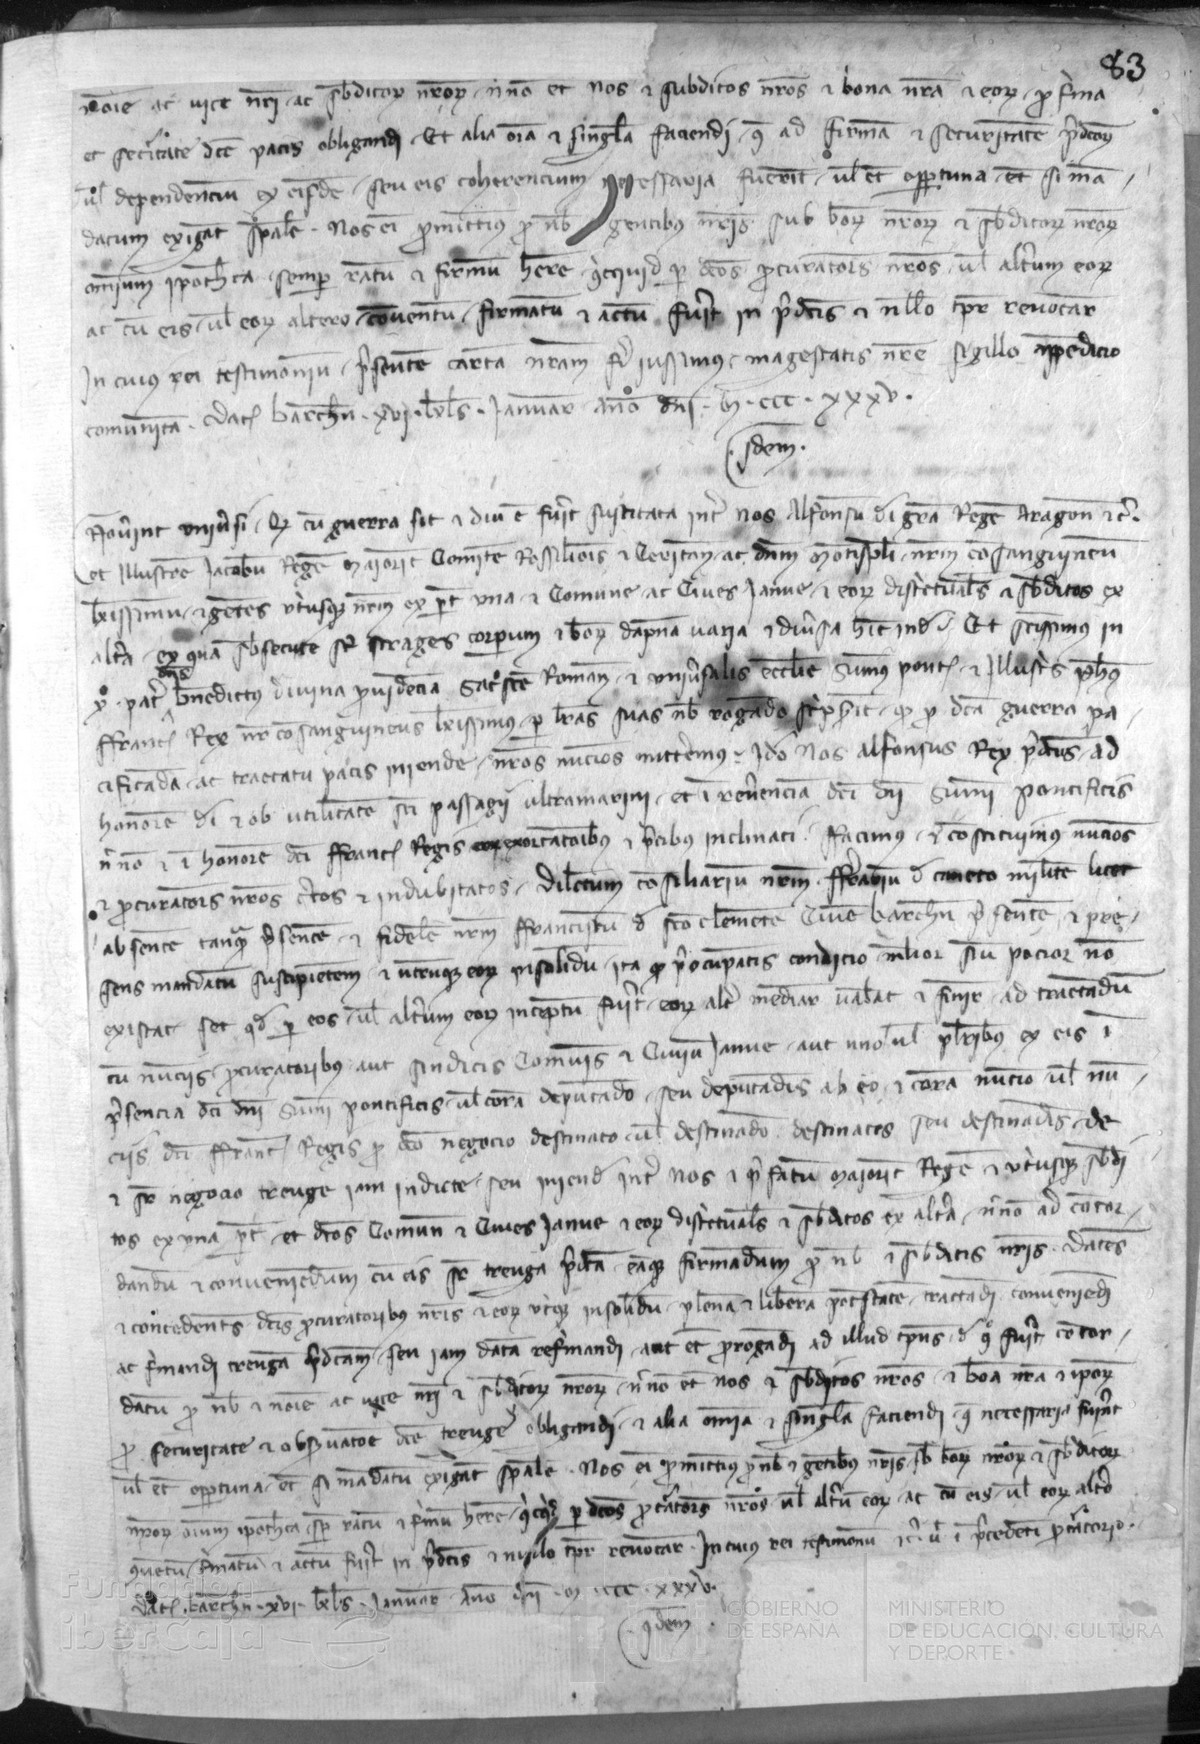 83
noie ac vice nri ac sbditor nror nno et nos et subditos nros et bona nra et eor pro firma
et securitate dce pacis obligandi et alia oia et singla faciendi q ad firma et securitate pdcor
vl dependenciu ex eisde seu eis coherencium necessaria fuerit vl et opportuna et si ma
datum exigat spale Nos ei promittim pro nb gentibus nris sub bor nror et sbditor nror
omnium ypotheca semper ratu et firmu here quicquid per dcos procurators nros vl altum eor
ac cu eis vl eor altero conventu firmatu et actu fuit in pdcis et nllo tpr revocar
In cuius rei testimoniu psente carta nram fi iussimus magestatis nre sigillo appendicio
comunita Dat barchn xvi kls Januar ano dni m ccc xxxv
Idem
Noverint universi Q cu guerra sit et diu e fuit suscitata int nos Alfonsu di gra Rege Aragon etc
et Illustre Jacobu Rege Maioric Comite Rossilionis et Ceritan ac dnm Montispli nrm cosanguineu
kissimu et getes utiusq nrm ex pt una et Comune ac Cives Janue et eor districtuals et sbditos ex
alta ex qua sbsecute st strages corporum et bor dapna varia et divsa hinc ind Et sctissimus in
xo pat dns bndictus divina providencia sacrosce Roman et univsalis ecclie summ pontf et Illustris phus
ffranc Rex nr cosanguineus kissimus p lras suas nb rogado scripsit q p dca guerra pa
cificada ac tractatu pacis iniende nros nucios mittemus Ido nos alfonsus Rex pdcus ad
honore di et ob utilitate sci passagii ultramarini et i revencia dci dni Sumi pontificis
nno et i honore dci ffranc Regis exortacoibus et pcibus inclinati ffacimus et costituimus nucios
et procurators nros ctos et indubitatos dilectum cosiliariu nrm fferariu d caneto milite licet
absente tanq psente et fidele nrm ffranciscu d sco clemete Cive barchn psente et pre
sens mandatu suscipietem et utruq eor insolidu ita q pocupatis condicio mlior siu pocior no
existat set qd p eos vl altum eor inceptu fuit eor alt mediar valeat et finir ad tractadu
cu nuciis procuratoribus aut sindicis Comuis et Civiu Janue aut uno vl plribus ex eis i
psencia dci dni Sumi pontificis vl cora deputado seu deputadis ab eo et cora nucio vl nu
ciis dci ffranc Regis pro dco negocio destinato vl destinado destinatos seu destinadis de
et sr negocio treuge iam indicte seu iniend int nos et pfatu maioric Rege et utiusq sbdi
tos ex una pt et dcos Comun et Cives Janue et eor districtuals et sbditos ex alta nno ad cocor
dandu et conveniedum cu eis sr treuga pdca eaq firmadum pro nb et sbditis nris dates
et concedents dcis procuratoribus nris et eor utiq insolidu plena et libera potestate tractadi conveniedi
ac firmandi treuga pdcam seu iam data refirmandi aut et progadi ad illud tpus d q fuit cocor
datu pro nb et noie ac vice nri et sbditor nror nno et nos et sbditos nros et boa nra et ipor
pro securitate et obsvatoe dce treuge obligandi et alia omia et singla faciendi q necessaria fuint
vl et opportuna et si madatu exigat spale Nos ei promittim pro nb et getibus nris sb bor nror et sbditor
nror oium ypotheca sp ratu et firmu here quicqd p dcos procurators nros vl altu eor ac cu eis vl eor alto
quetu firmatu et actu fuit in pdcis et nullo tpr revocar In cuius rei testimoniu etc ut i pcedenti procuratorio
Dat barchn xvi kls Januar ano dni m ccc xxxv
Idem
Fundación
iberCaja
GOBIERNO
DE ESPAÑA
MINISTERIO
DE EDUCACIÓN, CULTURA
Y DEPORTE